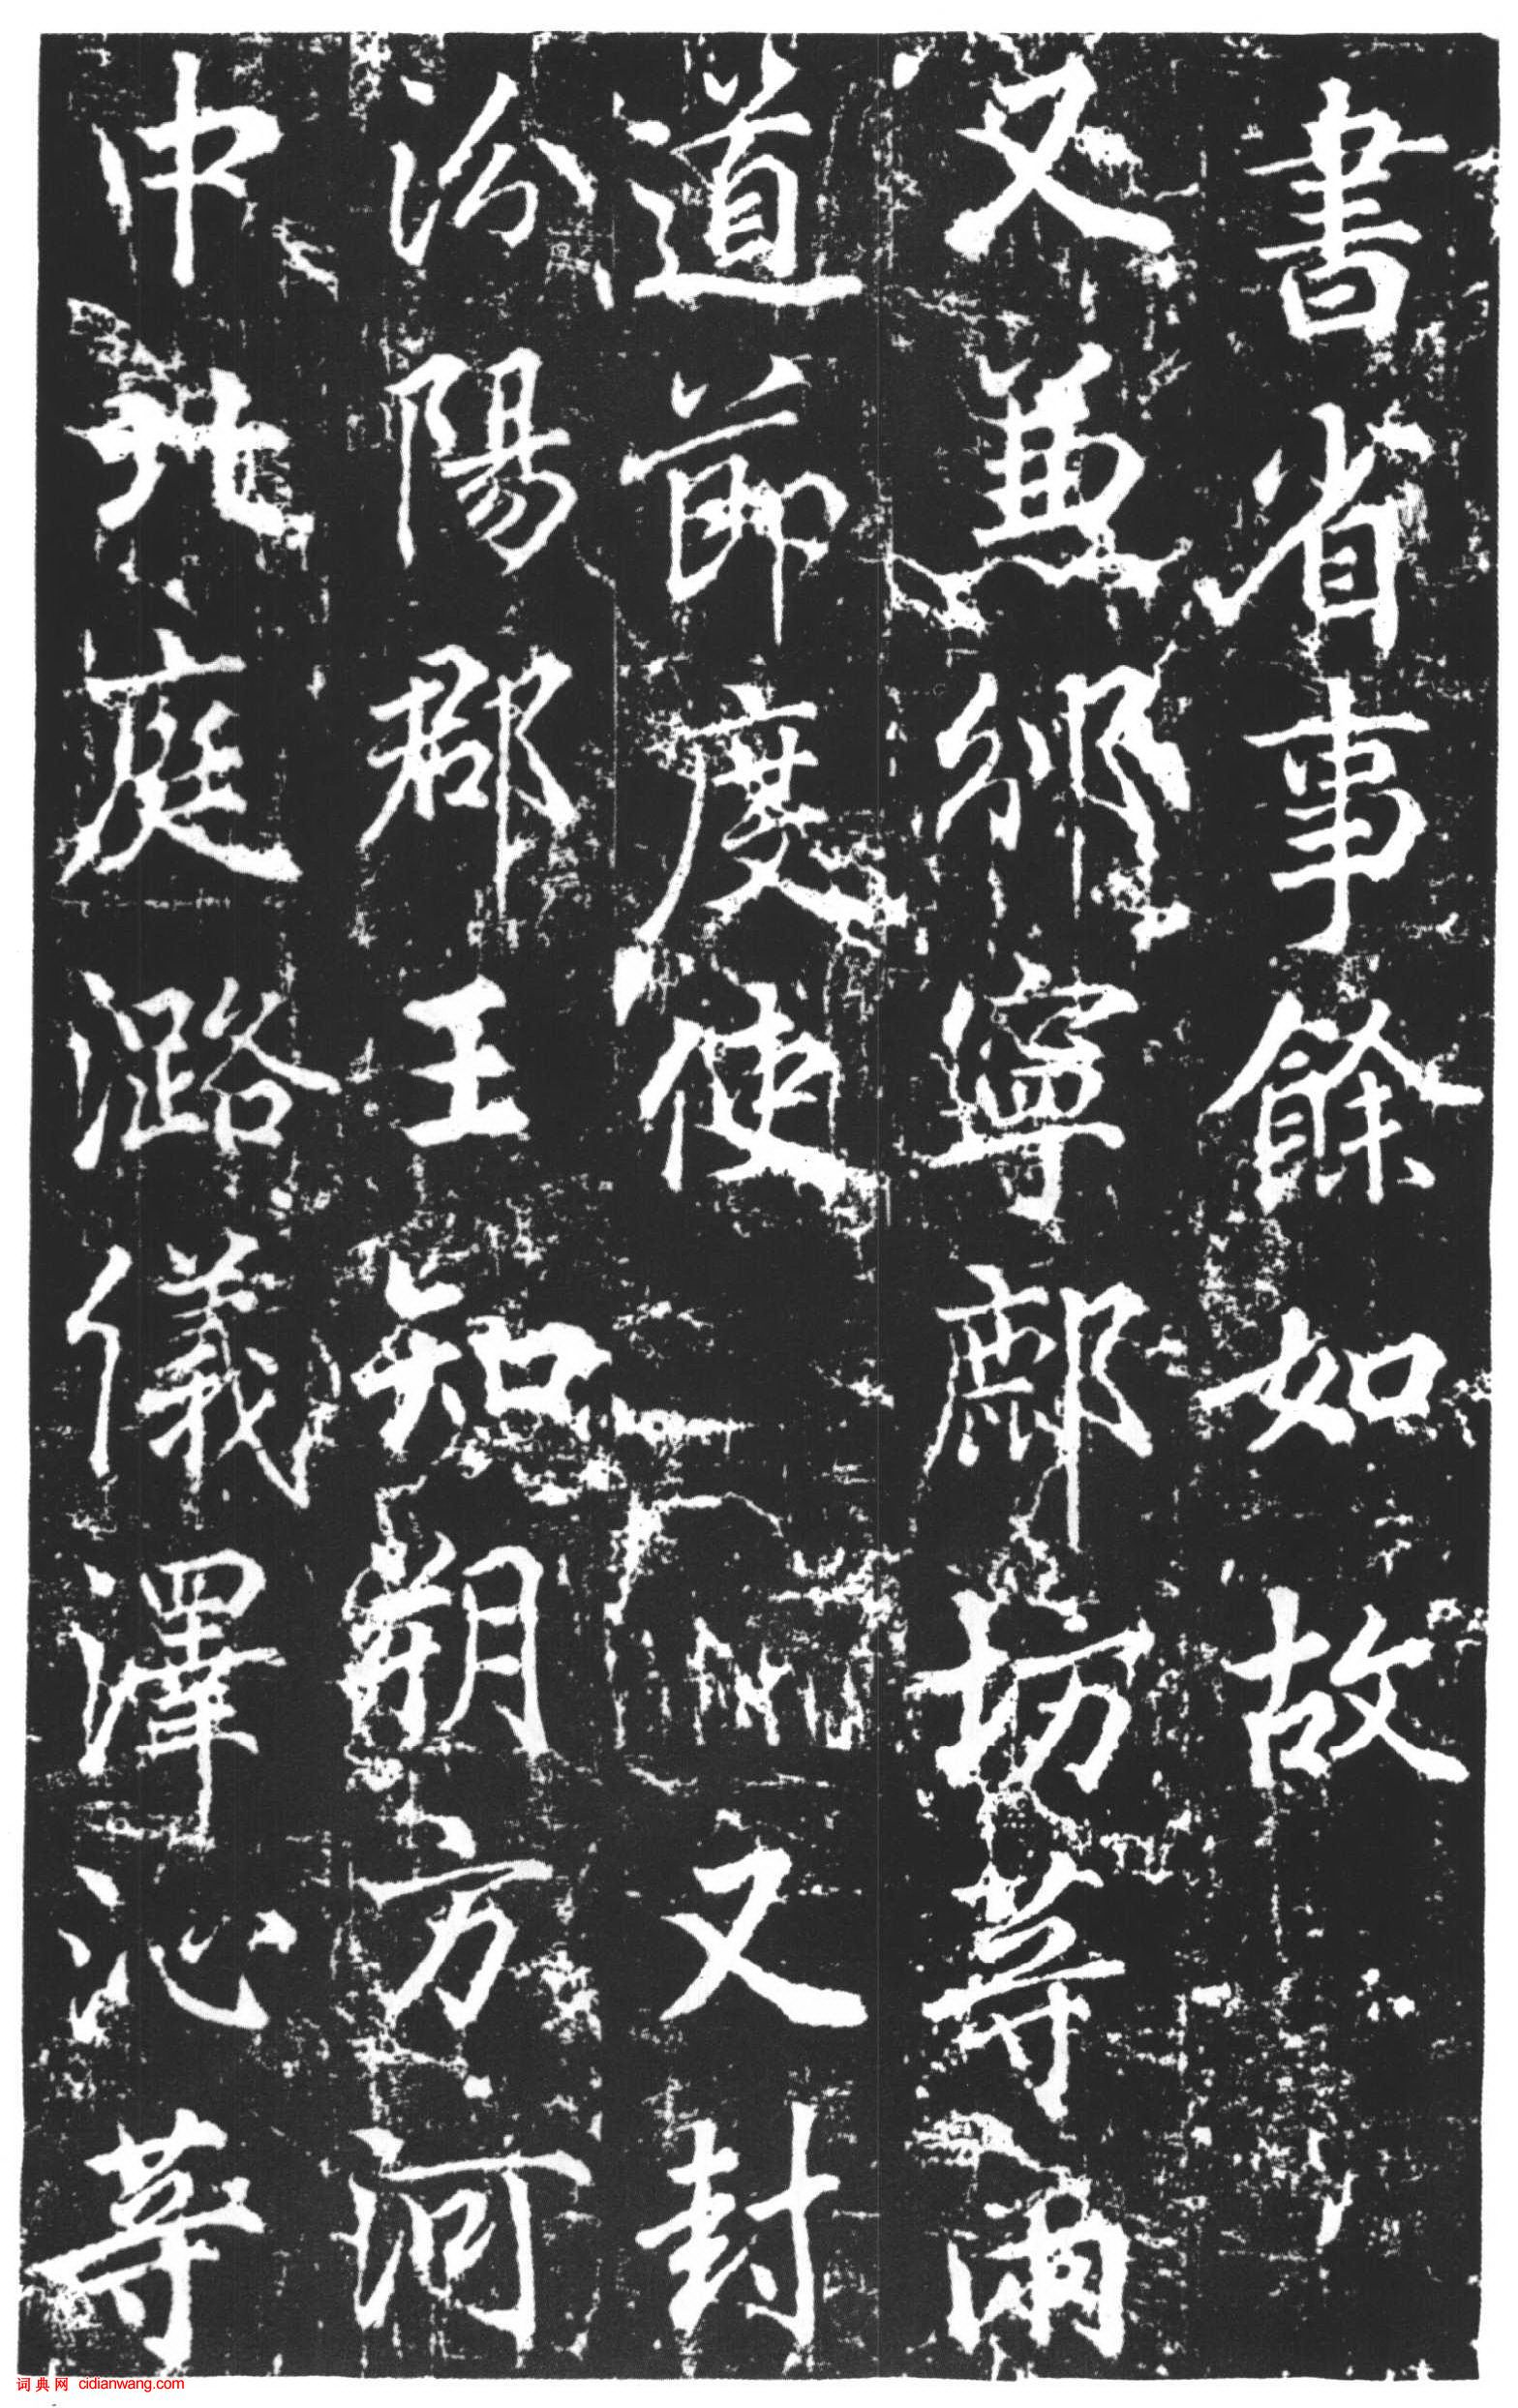 書省事餘如故
又兼邠寧鄜坊等兩
道節度使又封
汾陽郡王知朔方河
中北庭潞儀澤沁等
词典网 cidianwang.com